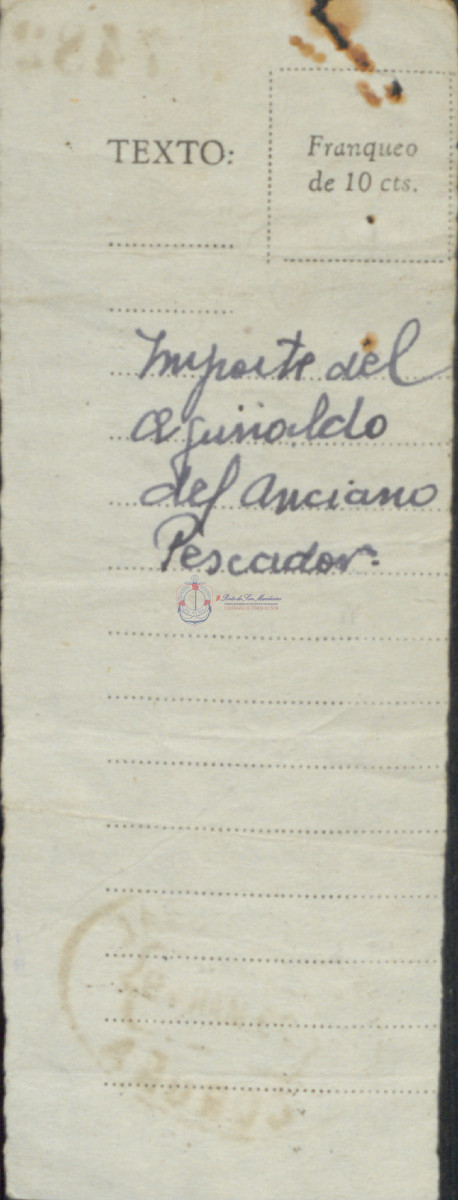 TEXTO:
Franqueo
de 10 cts.
Importe del
aguinaldo
del anciano
Pescador.